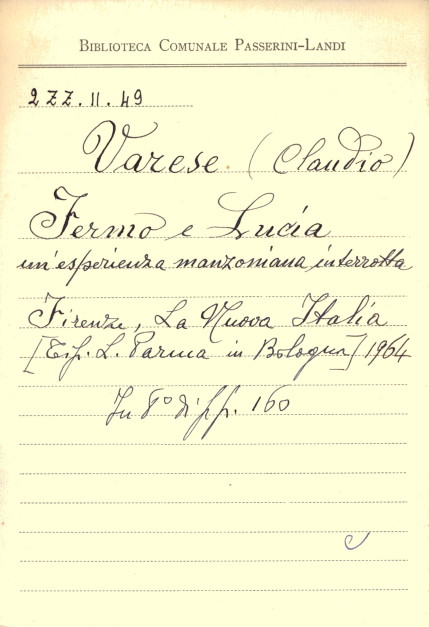 BIBLIOTECA COMUNALE PASSERINI-LANDI
2 ZZ. II. 49
Varese. (Claudio)
Fermo e Lucia
un'esperienza manzoniana interrotta
Firenze, La Nuova Italia
[Tip. L. Parma in Bologna] 1964
In 8° di pp. 160